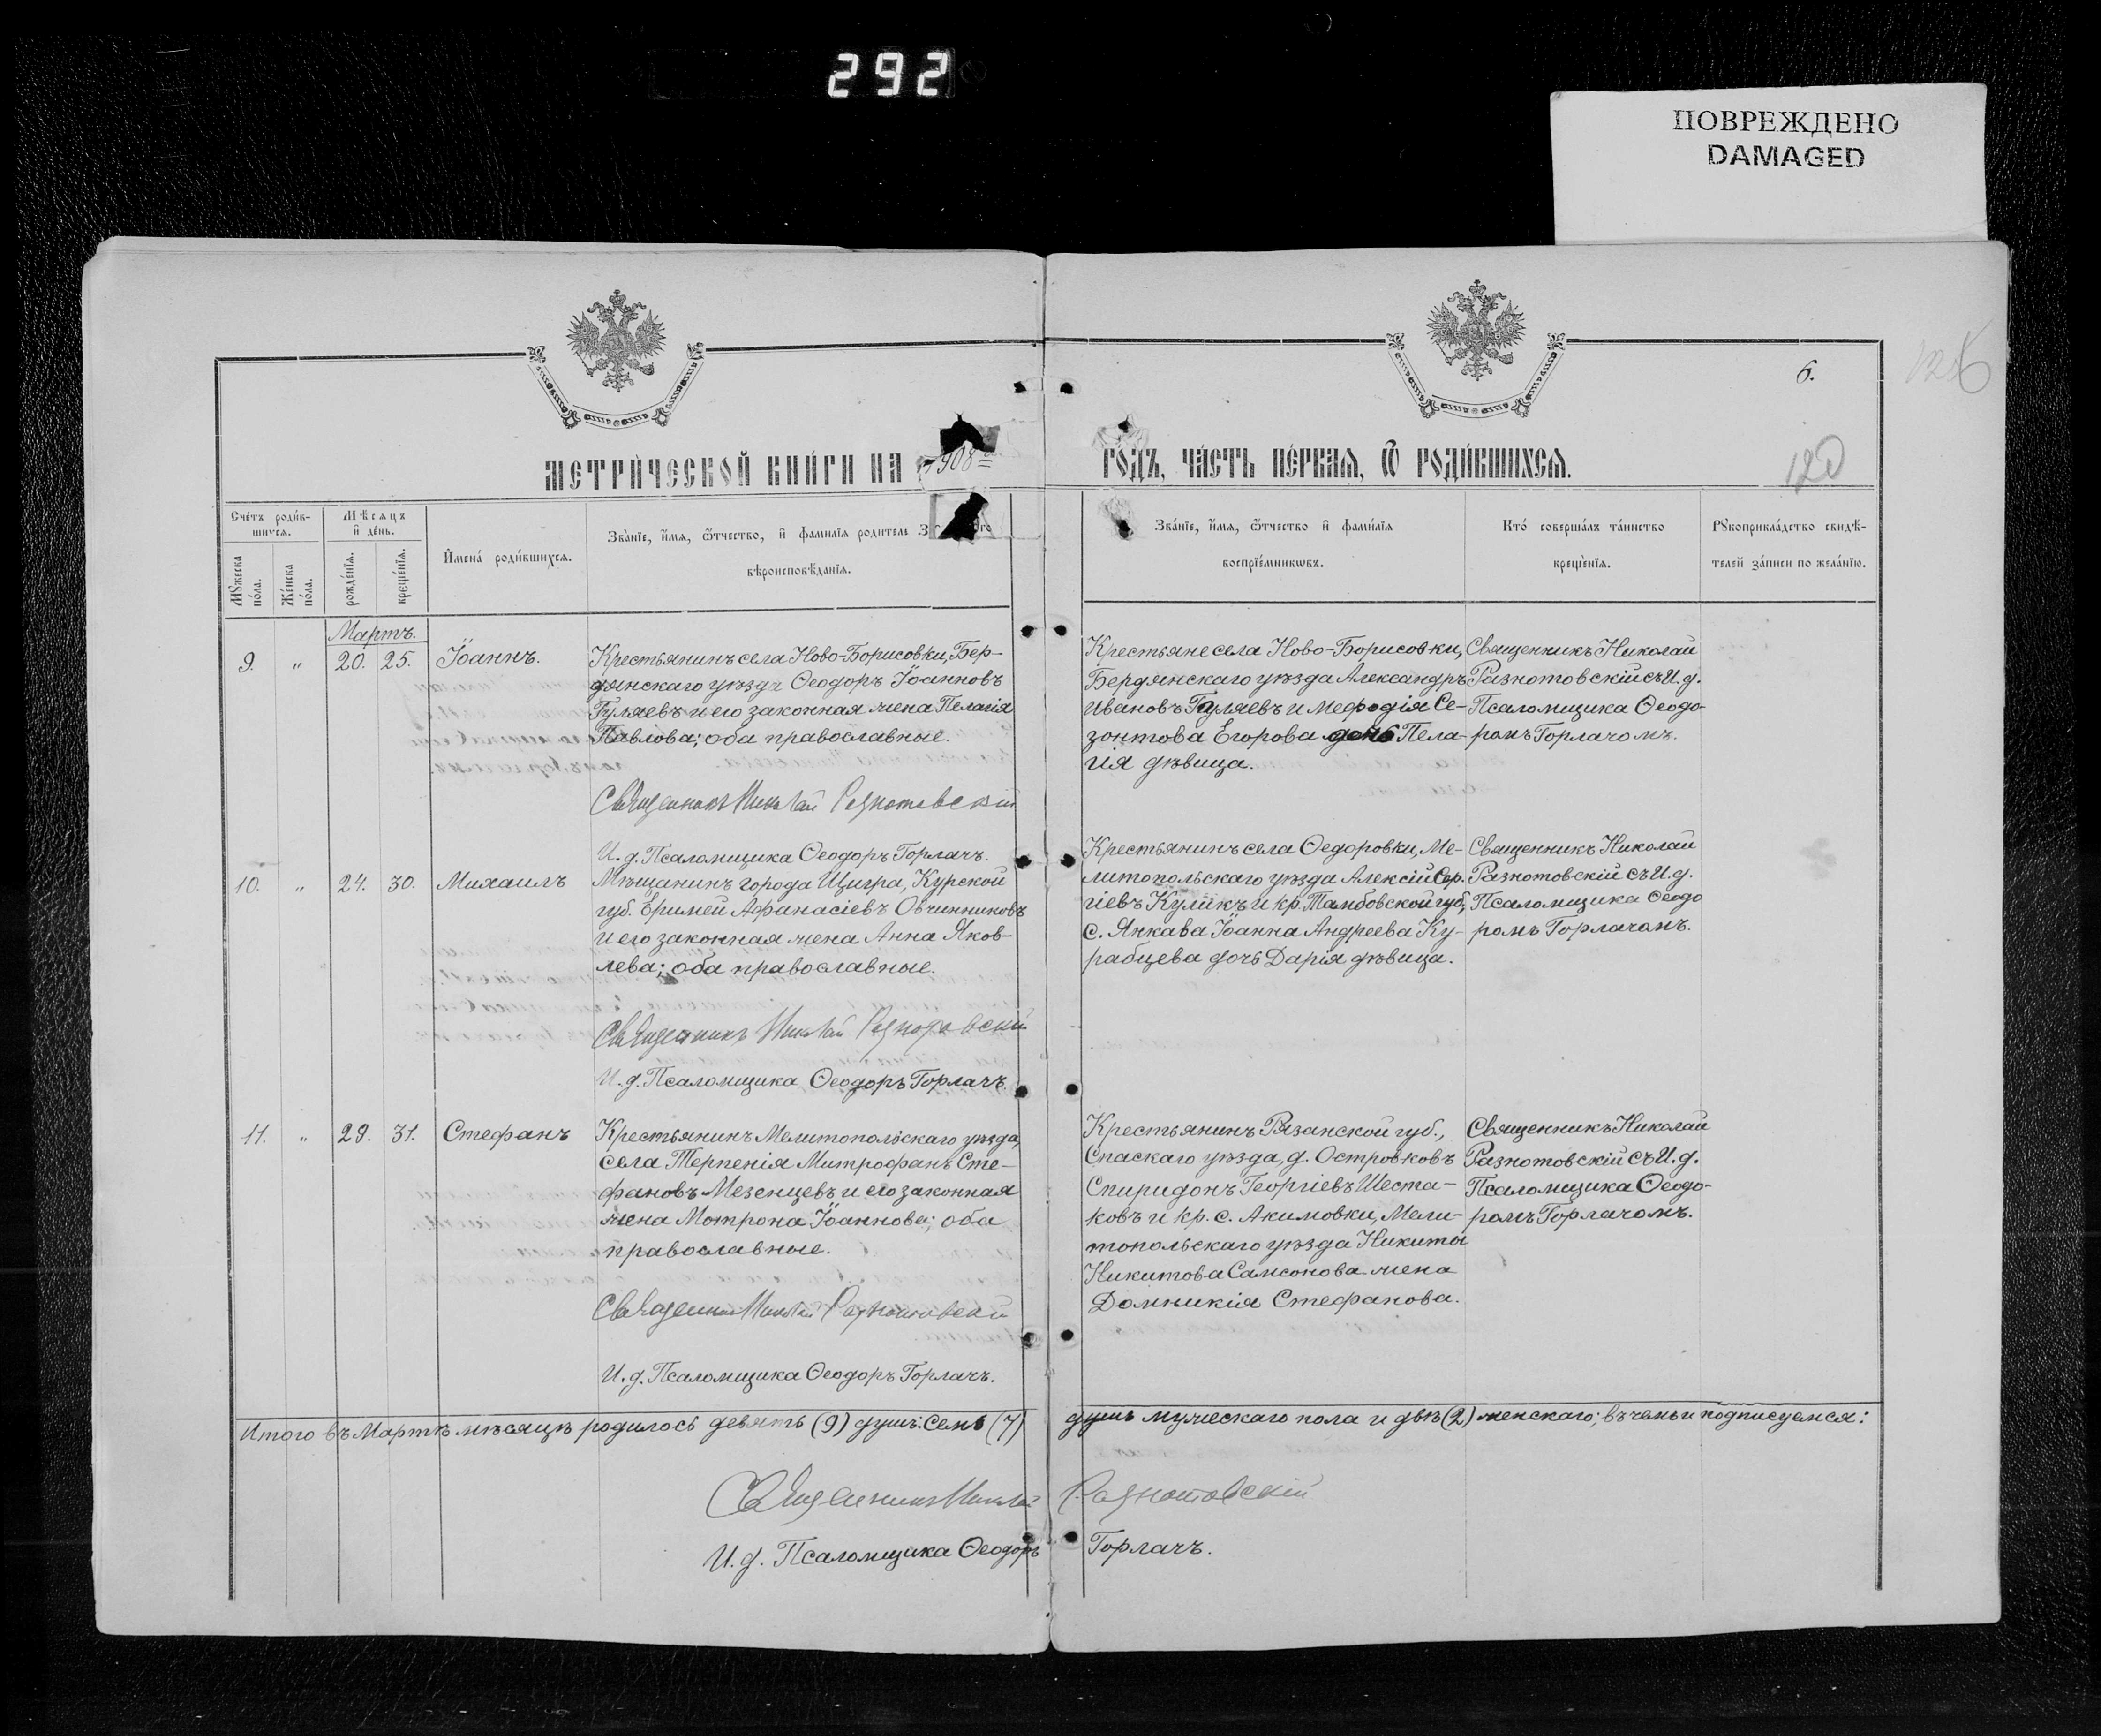 292
ПОВРЕЖДЕНО
DAMAGED
6.
120
МЕТРИЧЕСКОЙ КНИГИ НА 1908 ГОДЪ, ЧАСТЬ ПЕРВАЯ, Ѡ РОДИВШИХСЯ.
Счетъ родив-
шихся.
Мѣсяцъ
и день.
Мужеска пола.
Женска пола.
рожденїя.
крещенїя.
Имена родившихся.
Званїе, имя, ѿчество, и фамилїя родителей
вѣроисповѣданїя.
Званїе, имя, ѿчество и фамилїя
воспрїемниковъ.
Кто совершалъ таинство
крещенїя.
Рукоприкладство свидѣ-
телей записи по желанїю.
Мартъ.
9. " 20. 25. Іоаннъ.
Крестьянинъ села Ново-Борисовки, Бер-
дянскаго уѣзда Ѳеодоръ Іоанновъ
Гуляевъ и его законная жена Пелагія
Павлова; оба православные.
Священникъ Николай Разнотовскій
И. д. Псаломщика Ѳеодоръ Горлачъ.
Крестьяне села Ново-Борисовки,
Бердянскаго уѣзда Александръ
Ивановъ Гуляевъ и Мефодія Се-
зонтова Егорова дочь Пела-
гія дѣвица.
Священникъ Николай
Разнотовскій съ И. д.
Псаломщика Ѳеодо-
ромъ Горлачомъ.
10. " 24. 30. Михаилъ
Мѣщанинъ города Щигра, Курской
губ. Ефимей Афанасіевъ Овчинниковъ
и его законная жена Анна Яков-
лева; оба православные.
Священникъ Николай Разнотовскій
И. д. Псаломщика Ѳеодоръ Горлачъ.
Крестьянинъ села Ѳедоровки, Ме-
литопольскаго уѣзда Алексій Сер-
гіевъ Куликъ и кр. Тамбовской губ,
с. Янкава Іоанна Андреева Ку-
рабцева дочь Дарія дѣвица.
Священникъ Николай
Разнотовскій съ И. д.
Псаломщика Ѳеодо
ромъ Горлачомъ.
11. " 29. 31. Стефанъ
Крестьянинъ Мелитопольскаго уѣзда,
села Терпенія Митрофанъ Сте-
фановъ Мезенцевъ и его законная
жена Мотрона Іоаннова; оба
православные.
Священникъ Николай Разнотовскій
И. д. Псаломщика Ѳеодоръ Горлачъ.
Крестьянинъ Рязанской губ.,
Спаскаго уѣзда, д. Островковъ
Спиридонъ Георгіевъ Шеста-
ковъ и кр. с. Акимовки, Мели-
топольскаго уѣзда Никиты
Никитова Самсонова жена
Домникія Стефанова.
Священникъ Николай
Разнотовскій съ И. д.
Псаломщика Ѳеодо-
ромъ Горлачомъ.
Итого въ Мартѣ мѣсяцѣ родилось девять (9) душъ: Семь (7) душъ мужескаго пола и двѣ (2) женскаго; въ чемъ и подписуемся:
Священникъ Николай Разнотовскій
И. д. Псаломщика Ѳеодоръ Горлачъ.